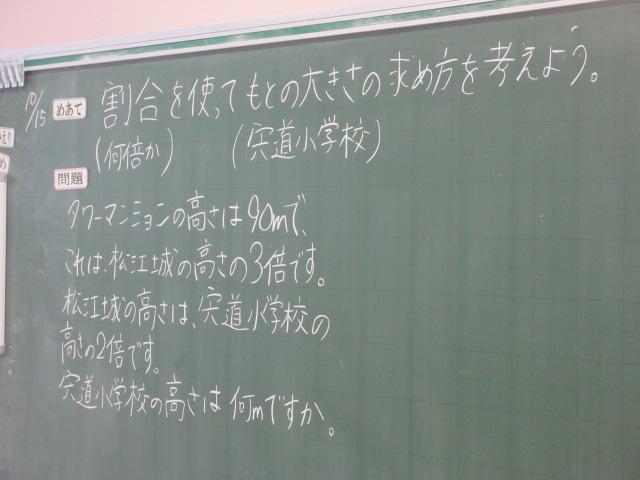 10/15 めあて 割合を使ってもとの大きさの求め方を考えよう。
(何倍か) (宍道小学校)
問題
タワーマンションの高さは90mで、
これは、松江城の高さの3倍です。
松江城の高さは、宍道小学校の
高さの2倍です。
宍道小学校の高さは何mですか。